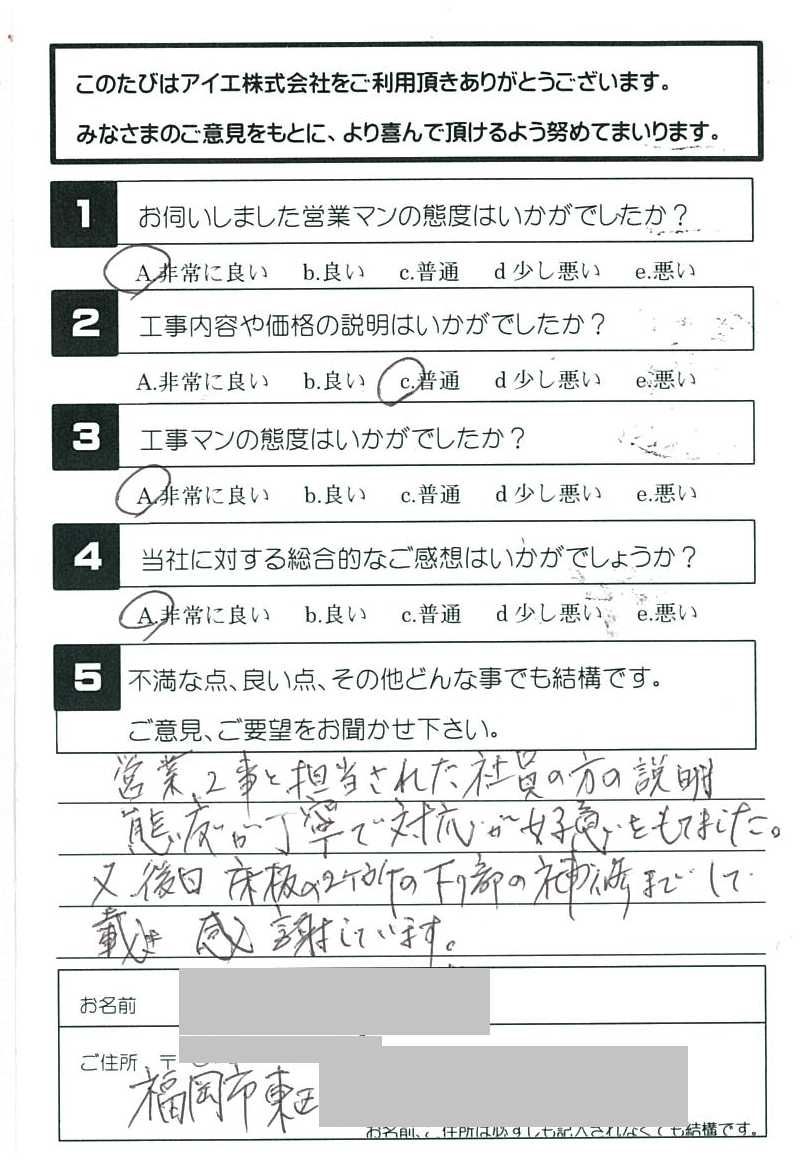 このたびはアイエ株式会社をご利用頂きありがとうございます。
みなさまのご意見をもとに、より喜んで頂けるよう努めてまいります。
1 お伺いしました営業マンの態度はいかがでしたか？
A.非常に良い b.良い c.普通 d 少し悪い e.悪い
2 工事内容や価格の説明はいかがでしたか？
A.非常に良い b.良い c.普通 d 少し悪い e.悪い
3 工事マンの態度はいかがでしたか？
A.非常に良い b.良い c.普通 d 少し悪い e.悪い
4 当社に対する総合的なご感想はいかがでしょうか？
A.非常に良い b.良い c.普通 d 少し悪い e.悪い
5 不満な点、良い点、その他どんな事でも結構です。
ご意見、ご要望をお聞かせ下さい。
営業、工事と担当された社員の方の説明
態度が丁寧で対応が好意をもてました。
又 後日 床板の2ヶ所の下り部の補修までして
戴き 感謝しています。
お名前
ご住所 〒
福岡市東区
お名前、ご住所は必ずしも記入されなくても結構です。